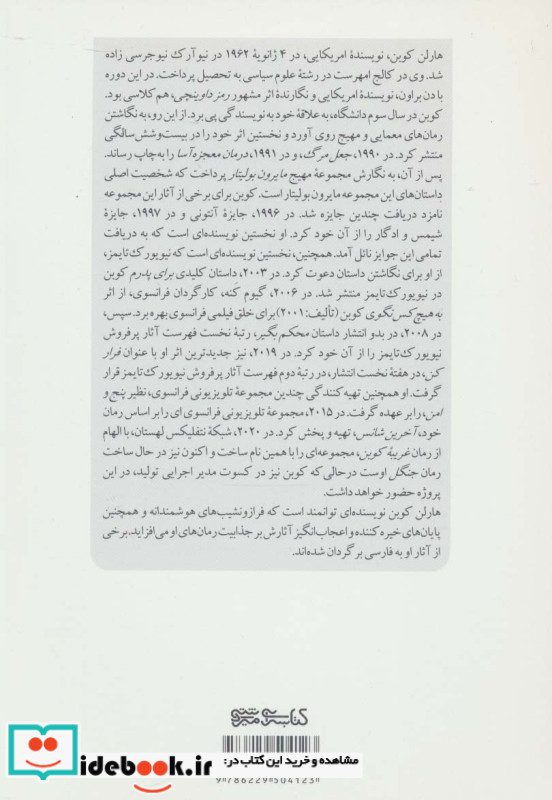 هارلن کوبن، نویسندهٔ امریکایی، در ۴ ژانویهٔ ۱۹۶۲ در نیوآرک نیوجرسی زاده
شد. وی در کالج امهرست در رشتهٔ علوم سیاسی به تحصیل پرداخت. در این دوره
با دن براون، نویسندهٔ امریکایی و نگارندهٔ اثر مشهور رمز داوینچی، هم کلاسی بود.
کوبن در سال سوم دانشگاه، به علاقهٔ خود به نویسندگی پی برد. از این رو، به نگاشتن
رمان‌های معمایی و مهیج روی آورد و نخستین اثر خود را در بیست‌وشش سالگی
منتشر کرد. در ۱۹۹۰، جعل مرگ، و در ۱۹۹۱، درمان معجزه‌آسا را به چاپ رساند.
پس از آن، به نگارش مجموعهٔ مهیج مایرون بولیتار پرداخت که شخصیت اصلی
داستان‌های این مجموعه مایرون بولیتار است. کوبن برای برخی از آثار این مجموعه
نامزد دریافت چندین جایزه شد. در ۱۹۹۶، جایزهٔ آنتونی و در ۱۹۹۷، جایزهٔ
شیمس و ادگار را از آن خود کرد. او نخستین نویسنده‌ای است که به دریافت
تمامی این جوایز نائل آمد. همچنین، نخستین نویسنده‌ای است که نیویورک تایمز،
از او برای نگاشتن داستان دعوت کرد. در ۲۰۰۳، داستان کلیدی برای پدرم کوبن
در نیویورک تایمز منتشر شد. در ۲۰۰۶، گیوم کَنه، کارگردان فرانسوی، از اثر
به هیچ کس نگوی کوبن (تألیف: ۲۰۰۱) برای خلق فیلمی فرانسوی بهره برد. سپس،
در ۲۰۰۸، در بدو انتشار داستان محکم بگیر، رتبهٔ نخست فهرست آثار پرفروش
نیویورک تایمز را از آن خود کرد. در ۲۰۱۹، نیز جدیدترین اثر او با عنوان فرار
کن، در هفتهٔ نخست انتشار، در رتبهٔ دوم فهرست آثار پرفروش نیویورک تایمز قرار
گرفت. او همچنین تهیه کنندگی چندین مجموعهٔ تلویزیونی فرانسوی، نظیر پنج و
امن، را بر عهده گرفت. در ۲۰۱۵، مجموعهٔ تلویزیونی فرانسوی ای را بر اساس رمان
خود، آخرین شانس، تهیه و پخش کرد. در ۲۰۲۰، شبکهٔ نتفلیکس لهستان، با الهام
از رمان غریبهٔ کوبن، مجموعه‌ای را با همین نام ساخت و اکنون نیز در حال ساخت
رمان جنگل اوست درحالی که کوبن نیز در کسوت مدیر اجرایی تولید، در این
پروژه حضور خواهد داشت.
هارلن کوبن نویسنده‌ای توانمند است که فرازونشیب‌های هوشمندانه و همچنین
پایان‌های خیره کننده و اعجاب‌انگیز آثارش بر جذابیت رمان‌های او می‌افزاید. برخی از
از آثار او به فارسی برگردان شده‌اند.
مشاهده و خرید این کتاب در:
idebook.ir
9 786229 504123